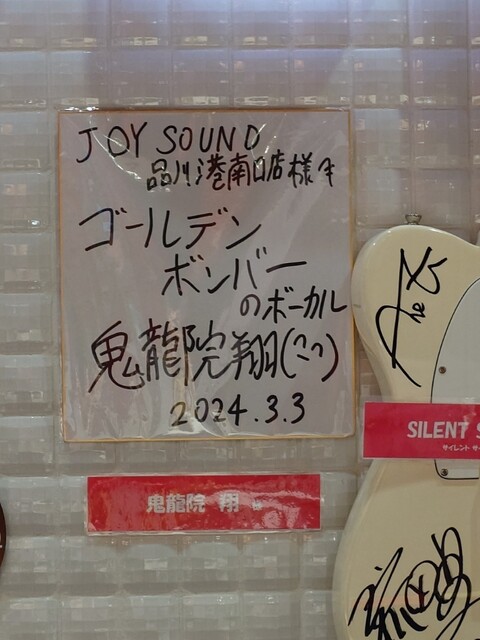 JOY SOUND
品川港南口店様へ
ゴールデン
ボンバー
のボーカル
鬼龍院翔(^^)
2024.3.3
鬼龍院 翔 様
SILENT S
サイレント サ